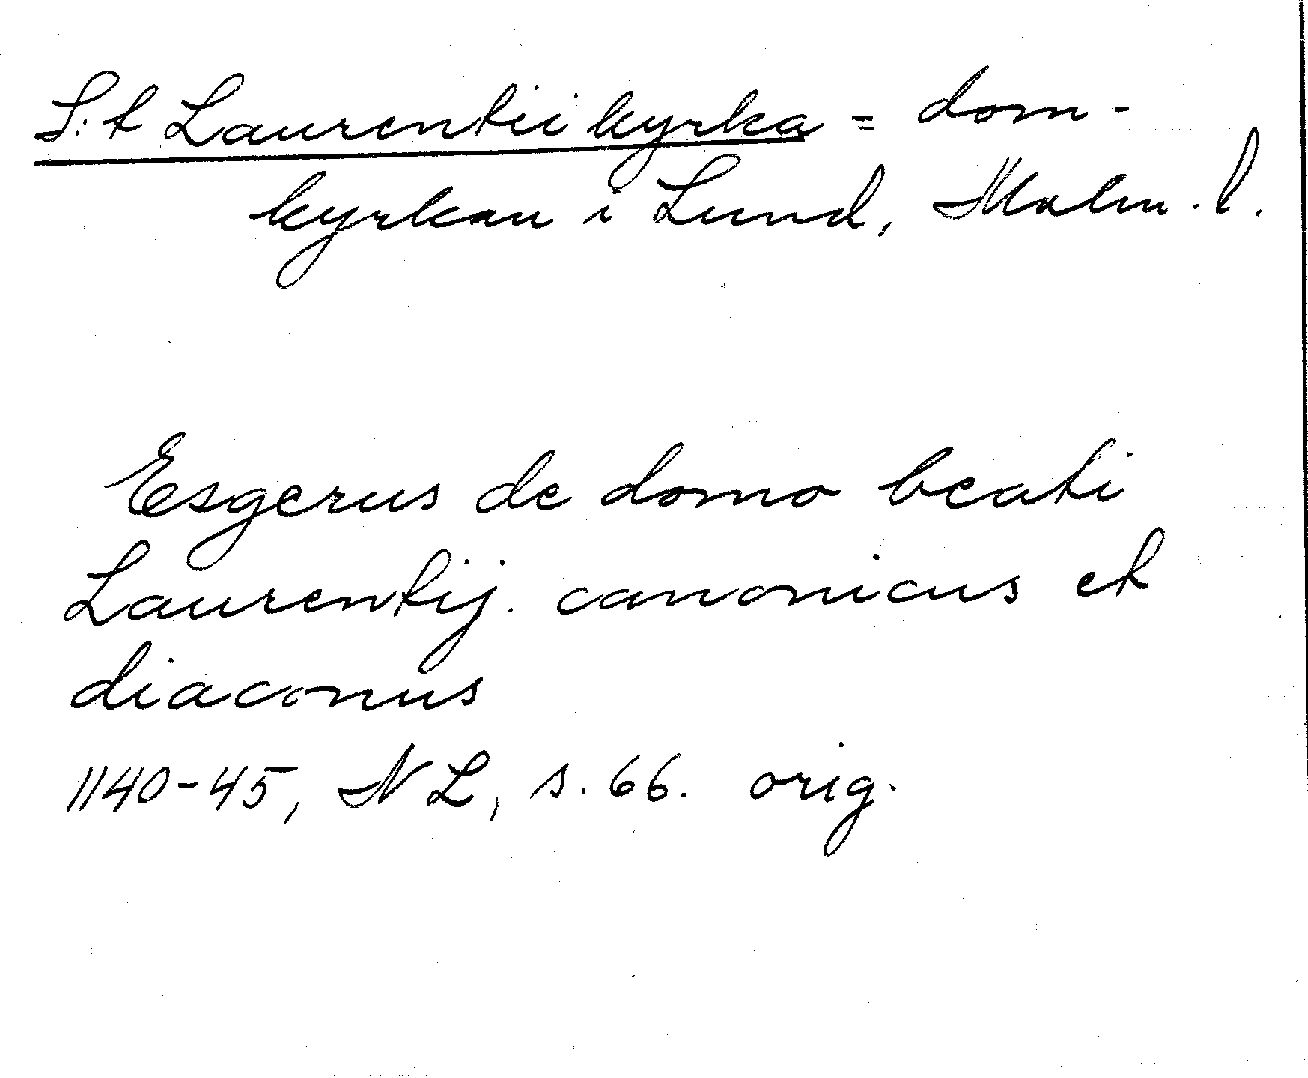 S:t Laurentii kyrka = dom-
kyrkan i Lund, Malm. l.
Esgerus de domo beati
Laurentij. canonicus et
diaconus
1140-45, NL, s. 66. orig.